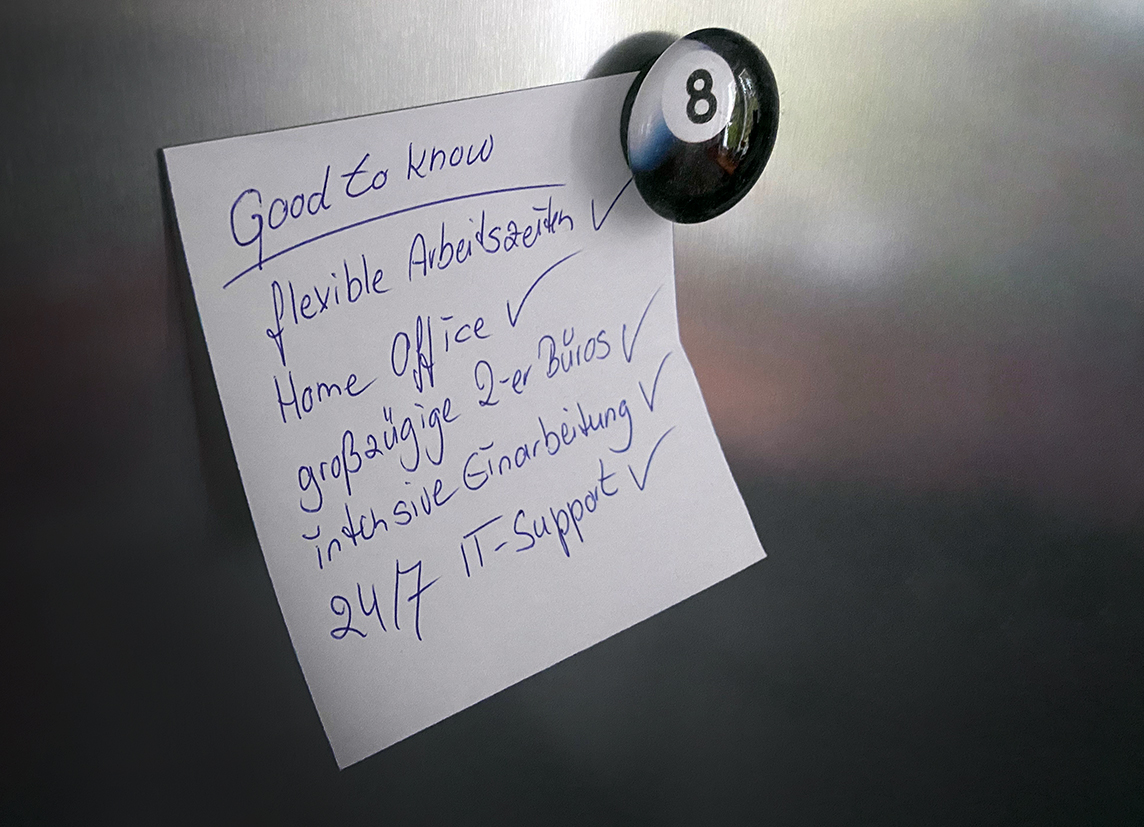 8
Good to know
flexible Arbeitszeiten ✓
Home Office ✓
großzügige 2-er Büros ✓
intensive Einarbeitung ✓
24/7 IT-Support ✓